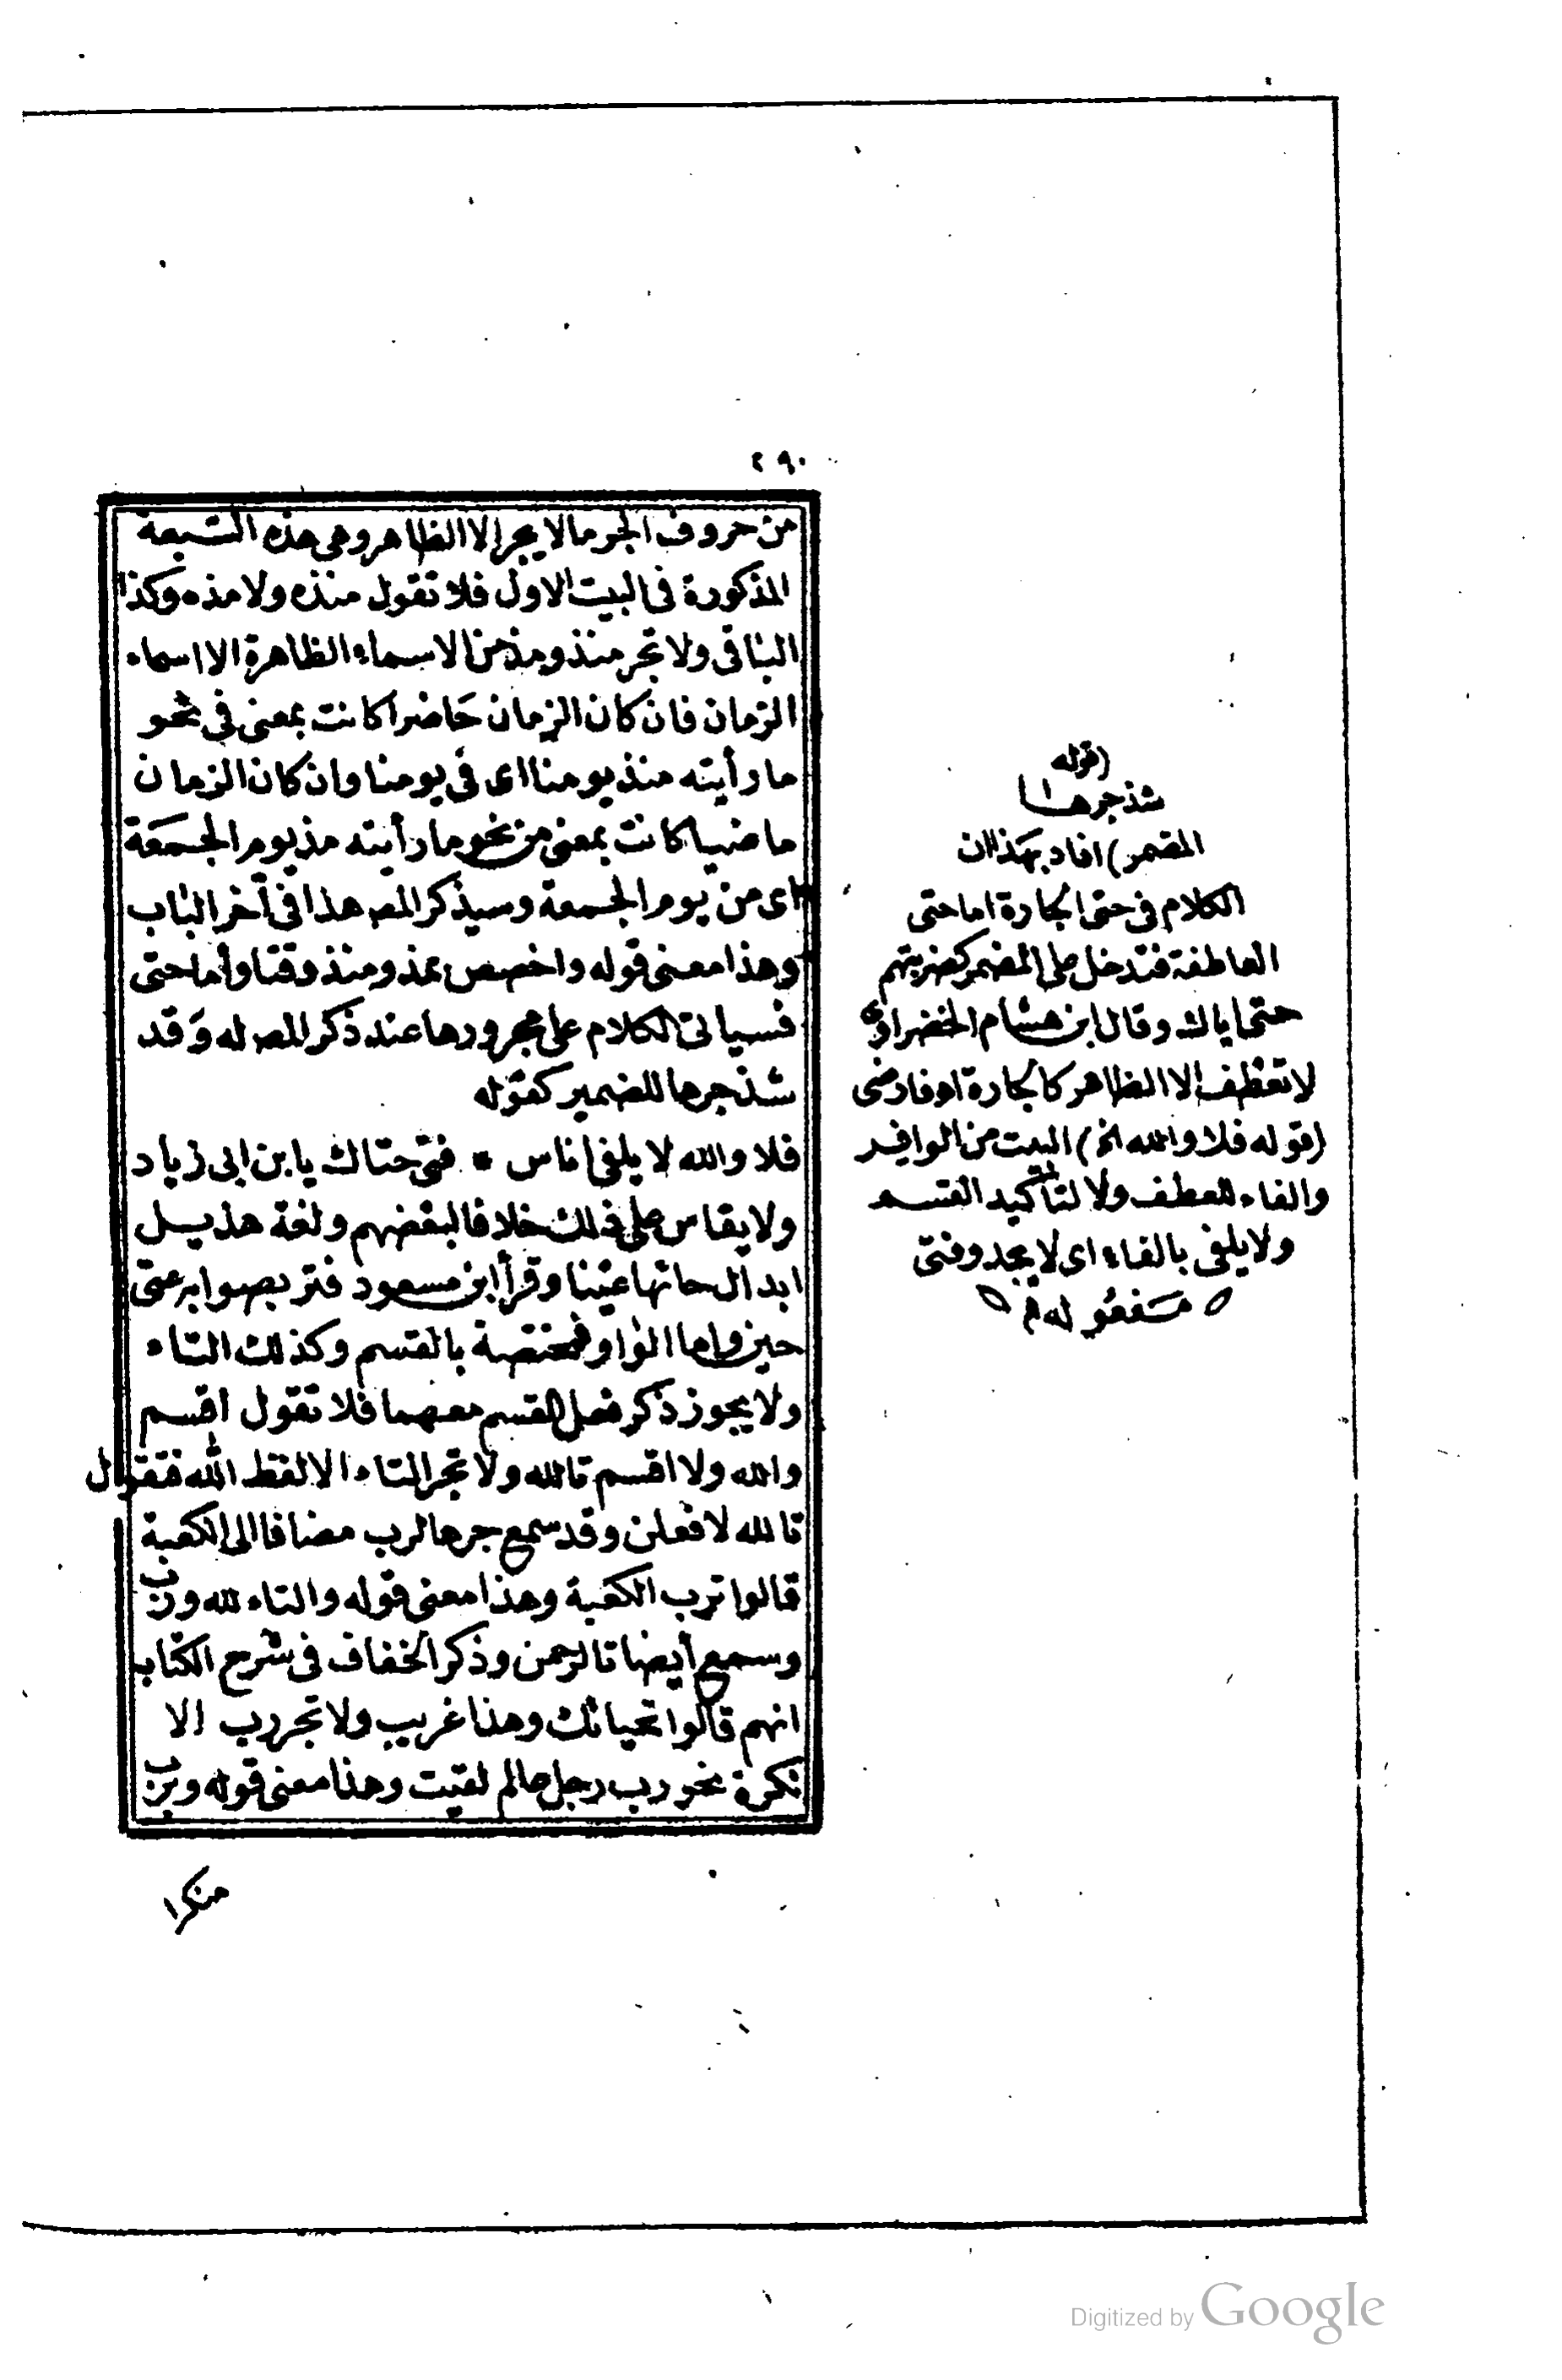 ٢٩٠
من حروف الجر ما لا يجر الا الظاهر وهى هذه السبعة
المذكورة فى البيت الاول فلا تقول منذه ولا مذه وكذا
الباقى ولا تجر منذ ومذ من الاسماء الظاهرة الا اسماء
الزمان فان كان الزمان حاضرا كانت بمعنى فى نحو
ما رأيته منذ يومنا اى فى يومنا وان كان الزمان
ماضيا كانت بمعنى من نحو ما رأيته مذ يوم الجمعة
اى من يوم الجمعة وسيذكر المص هذا فى آخر الباب
وهذا معنى قوله واخصص بمذ ومنذ وقتا وأما حتى
فسيأتى الكلام على مجرورها عند ذكر المص له وقد
شذ جرها للضمير كقوله
فلا والله لا يلفى اناس * فتى حتاك يا ابن ابى زياد
ولا يقاس على ذلك خلافا لبعضهم ولغة هذيل
ابدال حائها عينا وقرأ ابن مسعود فتربصوا به عتى
حين واما الواو فمختصة بالقسم وكذلك التاء
ولا يجوز ذكر فعل القسم معهما فلا تقول اقسم
والله ولا اقسم تالله ولا تجر التاء الا لفظ الله فتقول
تالله لافعلن وقد سمع جرها لرب مضافا الى الكعبة
قالوا ترب الكعبة وهذا معنى قوله والتاء لله ورب
وسمع أيضا تالرحمن وذكر الخفاف فى شرح الكتاب
انهم قالوا تحياتك وهذا غريب ولا تجر رب الا
نكرة نحو رب رجل عالم لقيت وهذا معنى قوله وبرب
منكرا
(قوله
شذ جرها
المضمر) افاد بهذا ان
الكلام فى حتى الجارة اما حتى
العاطفة فتدخل على المضمر كضربتهم
حتى اياك وقال ابن هشام الخضراوى
لا تعطف الا الظاهر كالجارة اه فارضى
(قوله فلا والله الخ) البيت من الوافر
والفاء للعطف ولا لتأكيد القسم
ولا يلفى بالفاء اى لا يجد وفتى
مفعوله
Digitized by Google